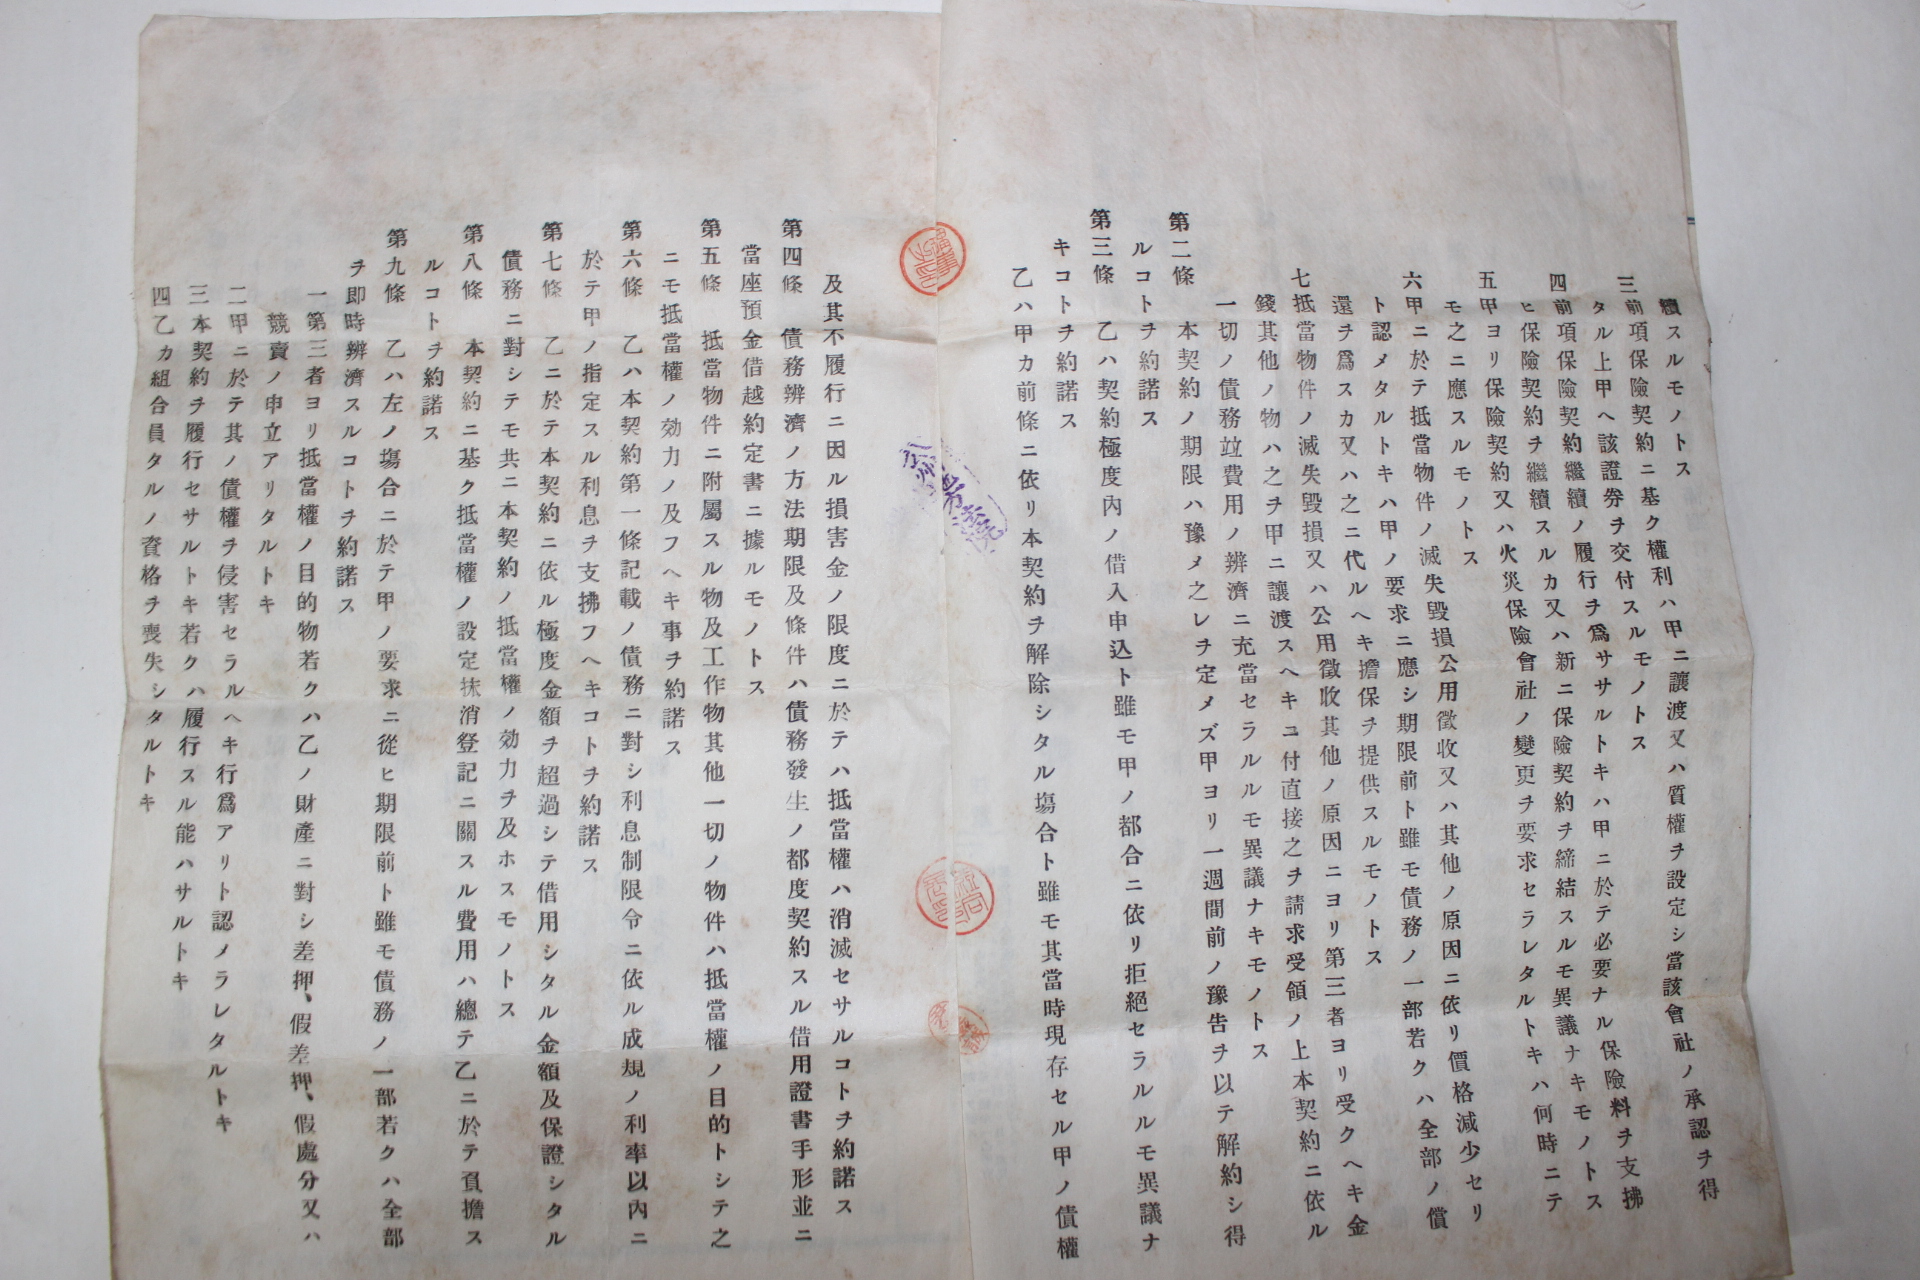 續スルモノトス
三前項保險契約ニ基ク權利ハ甲ニ讓渡又ハ質權ヲ設定シ當該會社ノ承認ヲ得
タル上甲ヘ該證券ヲ交付スルモノトス
四前項保險契約繼續ノ履行ヲ爲ササルトキハ甲ニ於テ必要ナル保險料ヲ支拂
ヒ保險契約ヲ繼續スルカ又ハ新ニ保險契約ヲ締結スルモ異議ナキモノトス
五甲ヨリ保險契約又ハ火災保險會社ノ變更ヲ要求セラレタルトキハ何時ニテ
モ之ニ應スルモノトス
六甲ニ於テ抵當物件ノ滅失毀損公用徵收又ハ其他ノ原因ニ依リ價格減少セリ
ト認メタルトキハ甲ノ要求ニ應シ期限前ト雖モ債務ノ一部若クハ全部ノ償
還ヲ爲スカ又ハ之ニ代ルヘキ擔保ヲ提供スルモノトス
七抵當物件ノ滅失毀損又ハ公用徵收其他ノ原因ニヨリ第三者ヨリ受クヘキ金
錢其他ノ物ハ之ヲ甲ニ讓渡スヘキニ付直接之ヲ請求受領ノ上本契約ニ依ル
一切ノ債務竝費用ノ辨濟ニ充當セラルルモ異議ナキモノトス
第二條　本契約ノ期限ハ豫メ之レヲ定メズ甲ヨリ一週間前ノ豫告ヲ以テ解約シ得
ルコトヲ約諾ス
第三條　乙ハ契約極度內ノ借入申込ト雖モ甲ノ都合ニ依リ拒絕セラルルモ異議ナ
キコトヲ約諾ス
乙ハ甲カ前條ニ依リ本契約ヲ解除シタル塲合ト雖モ其當時現存セル甲ノ債權
及其不履行ニ因ル損害金ノ限度ニ於テハ抵當權ハ消滅セサルコトヲ約諾ス
第四條　債務辨濟ノ方法期限及條件ハ債務發生ノ都度契約スル借用證書手形並ニ
當座預金借越約定書ニ據ルモノトス
第五條　抵當物件ニ附屬スル物及工作物其他一切ノ物件ハ抵當權ノ目的トシテ之
ニモ抵當權ノ効力ノ及フヘキ事ヲ約諾ス
第六條　乙ハ本契約第一條記載ノ債務ニ對シ利息制限令ニ依ル成規ノ利率以內ニ
於テ甲ノ指定スル利息ヲ支拂フヘキコトヲ約諾ス
第七條　乙ニ於テ本契約ニ依ル極度金額ヲ超過シテ借用シタル金額及保證シタル
債務ニ對シテモ共ニ本契約ノ抵當權ノ効力ヲ及ホスモノトス
第八條　本契約ニ基ク抵當權ノ設定抹消登記ニ關スル費用ハ總テ乙ニ於テ負擔ス
ルコトヲ約諾ス
第九條　乙ハ左ノ塲合ニ於テ甲ノ要求ニ從ヒ期限前ト雖モ債務ノ一部若クハ全部
ヲ即時辨濟スルコトヲ約諾ス
一第三者ヨリ抵當權ノ目的物若クハ乙ノ財產ニ對シ差押、假差押、假處分又ハ
競賣ノ申立アリタルトキ
二甲ニ於テ其ノ債權ヲ侵害セラルヘキ行爲アリト認メラレタルトキ
三本契約ヲ履行セサルトキ若クハ履行スル能ハサルトキ
四乙カ組合員タルノ資格ヲ喪失シタルトキ